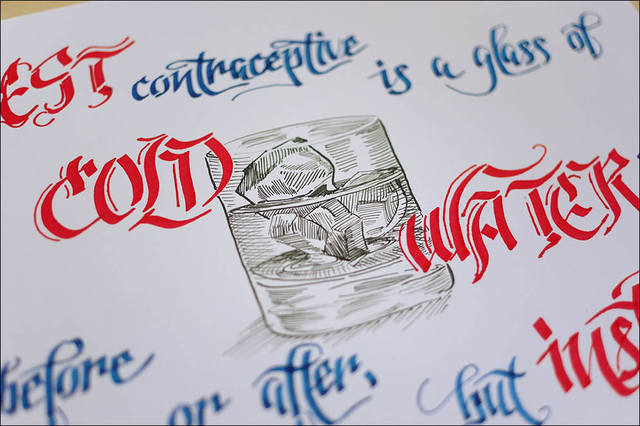 EST contraceptive is a glass of
COLD WATER
before or after, but inst